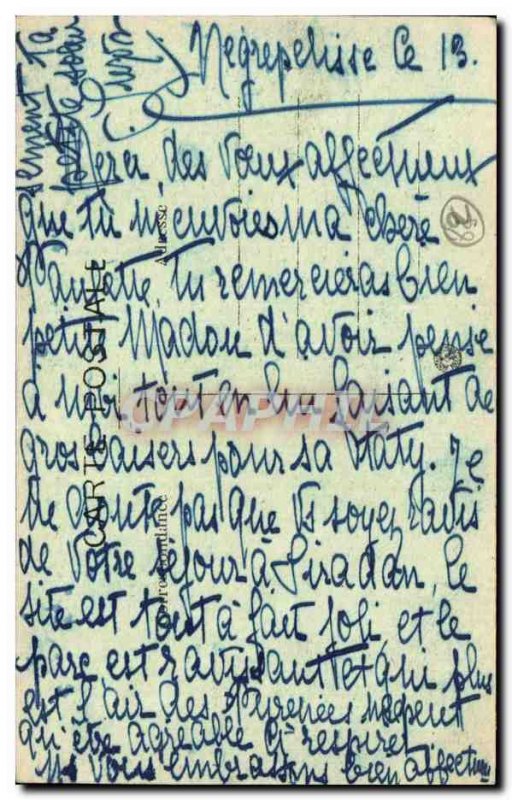 Negrepelisse le 13.
Merci des vœux affectueux
que tu m'envoies ma chère
Paulette, tu remercieras bien
petit Madou d'avoir pensé
à moi tout en lui faisant de
gros baisers pour sa Taty. Je
ne doute pas que vs soyez ravis
de votre séjour à Siradan, le
site est tout à fait joli et le
parc est ravissant et qui plus
est l'air des Pyrénées ne peut
qu'être agréable à respirer
Ns vous embrassons bien affectueu
sement ta
petite
CARTE POSTALE
Correspondance
Adresse
CPAPHIL